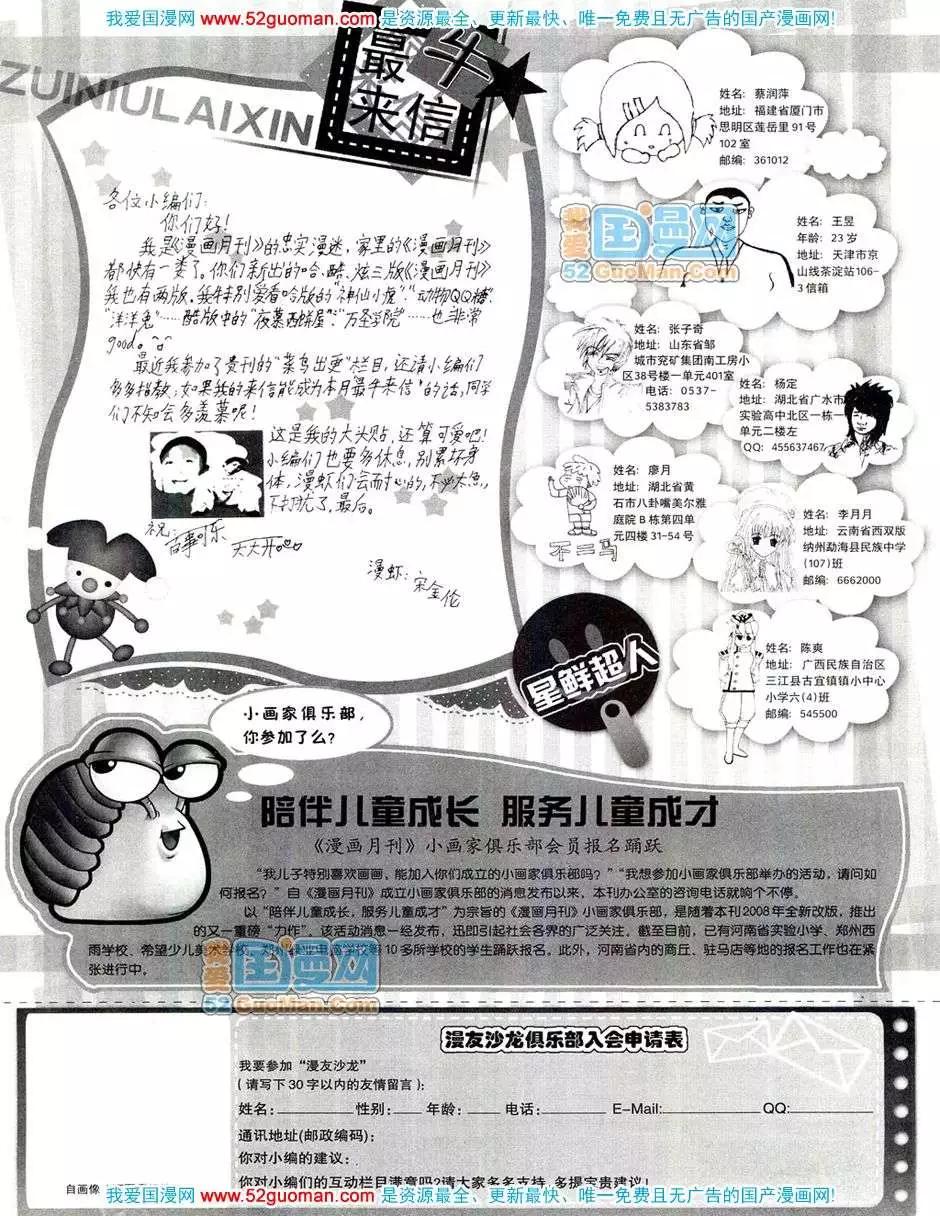 我爱国漫网 www.52guoman.com 是资源最全、更新最快、唯一免费且无广告的国产漫画网!
ZUINIULAIXIN
最牛
来信
各位小编们:
你们好!
我是《漫画月刊》的忠实漫迷,家里的《漫画月刊》
都快有一类了。你们新出的哈、酷、炫三版《漫画月刊》
我也有两版。我特别爱看哈版的"神仙小虎"、"动物QQ糖"、
"洋洋兔"……酷版中的"夜幕西饼屋"、"万圣学院"……也非常
good。
最近我参加了贵刊的"菜鸟出更"栏目,还请小编们
多多指教;如果我的来信能成为本月"最牛来信"的话,同学
们不知会多羡慕呢!
这是我的大头贴,还算可爱吧!
小编们也要多休息,别累坏身
体,漫虾们会耐心的,不必太急。
不打扰了,最后。
祝:
天天开
漫虾:宋金伦
姓名: 蔡润萍
地址: 福建省厦门市
思明区莲岳里91号
102室
邮编: 361012
姓名: 王昱
年龄: 23岁
地址: 天津市京
山线茶淀站106-
3信箱
姓名: 张子奇
地址: 山东省邹
城市兖矿集团南工房小
区38号楼一单元401室
电话: 0537-
5383783
姓名: 杨定
地址: 湖北省广水市
实验高中北区一栋一
单元二楼左
QQ: 455637467
姓名: 廖月
地址: 湖北省黄
石市八卦嘴美尔雅
庭院B栋第四单
元四楼31-54号
不二马
姓名: 李月月
地址: 云南省西双版
纳州勐海县民族中学
(107)班
邮编: 6662000
姓名: 陈爽
地址: 广西民族自治区
三江县古宜镇镇小中心
小学六(4)班
邮编: 545500
星鲜超人
我爱国漫网
52GuoMan.Com
小画家俱乐部,
你参加了么?
陪伴儿童成长 服务儿童成才
《漫画月刊》小画家俱乐部会员报名踊跃
"我儿子特别喜欢画画,能加入你们成立的小画家俱乐部吗?""我想参加小画家俱乐部举办的活动,请问如
何报名?"自《漫画月刊》成立小画家俱乐部的消息发布以来,本刊办公室的咨询电话就响个不停。
以"陪伴儿童成长,服务儿童成才"为宗旨的《漫画月刊》小画家俱乐部,是随着本刊2008年全新改版,推出
的又一重磅"力作"。该活动消息一经发布,迅即引起社会各界的广泛关注。截至目前,已有河南省实验小学、郑州西
雨学校、希望少儿美术学校、郑州 业电脑学校等10多所学校的学生踊跃报名。此外,河南省内的商丘、驻马店等地的报名工作也在紧
张进行中。
我爱国漫网
52GuoMan.Com
漫友沙龙俱乐部入会申请表
我要参加"漫友沙龙"
(请写下30字以内的友情留言):
姓名: 性别: 年龄: 电话: E-Mail: QQ:
通讯地址(邮政编码):
你对小编的建议:
你对小编们的互动栏目满意吗?请大家多多支持,多提宝贵建议!
自画像
我爱国漫网 www.52guoman.com 是资源最全、更新最快、唯一免费且无广告的国产漫画网!